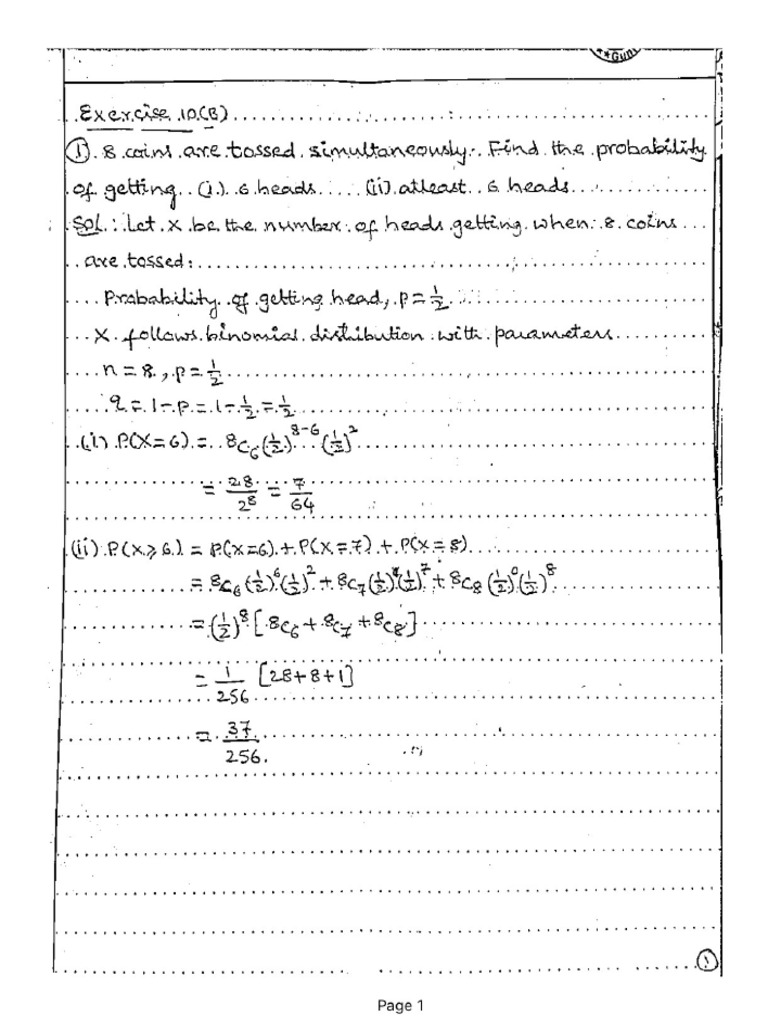 **Gun
Exercise 10(B)
① 8 coins are tossed simultaneously. Find the probability
of getting (i) 6 heads (ii) atleast 6 heads
Sol: Let X be the number of heads getting when 8 coins
are tossed:
Probability of getting head, p = 1/2
X follows binomial distribution with parameters
n = 8, p = 1/2
q = 1 - p = 1 - 1/2 = 1/2
(i) P(X = 6) = 8C6 (1/2)^8-6 (1/2)^2
= 28/2^8 = 7/64
(ii) P(X ⩾ 6) = P(X = 6) + P(X = 7) + P(X = 8)
= 8C6 (1/2)^6 (1/2)^2 + 8C7 (1/2) (1/2)^7 + 8C8 (1/2)^0 (1/2)^8
= (1/2)^8 [8C6 + 8C7 + 8C8]
= 1/256 [28 + 8 + 1]
= 37/256.
①
Page 1